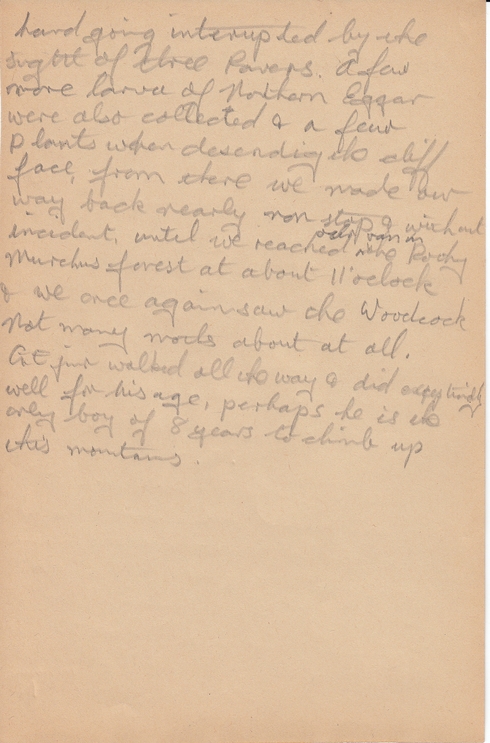 hard going interrupted by the
sight of three Ravens. A few
more larvae of Northern Eggar
were also collected & a few
plants when desendig the cliff
face, from there we made our
way back nearly non stop & without
incident, until we reached the Rothy
Murchus forest at about 11 o'clock
& we once again saw the Woodcock
Not many mods about at all.
G.E. junr walked all the way & did exceptionally
well for his age, perhaps he is the
only boy of 8 years to climb up
this mountains.